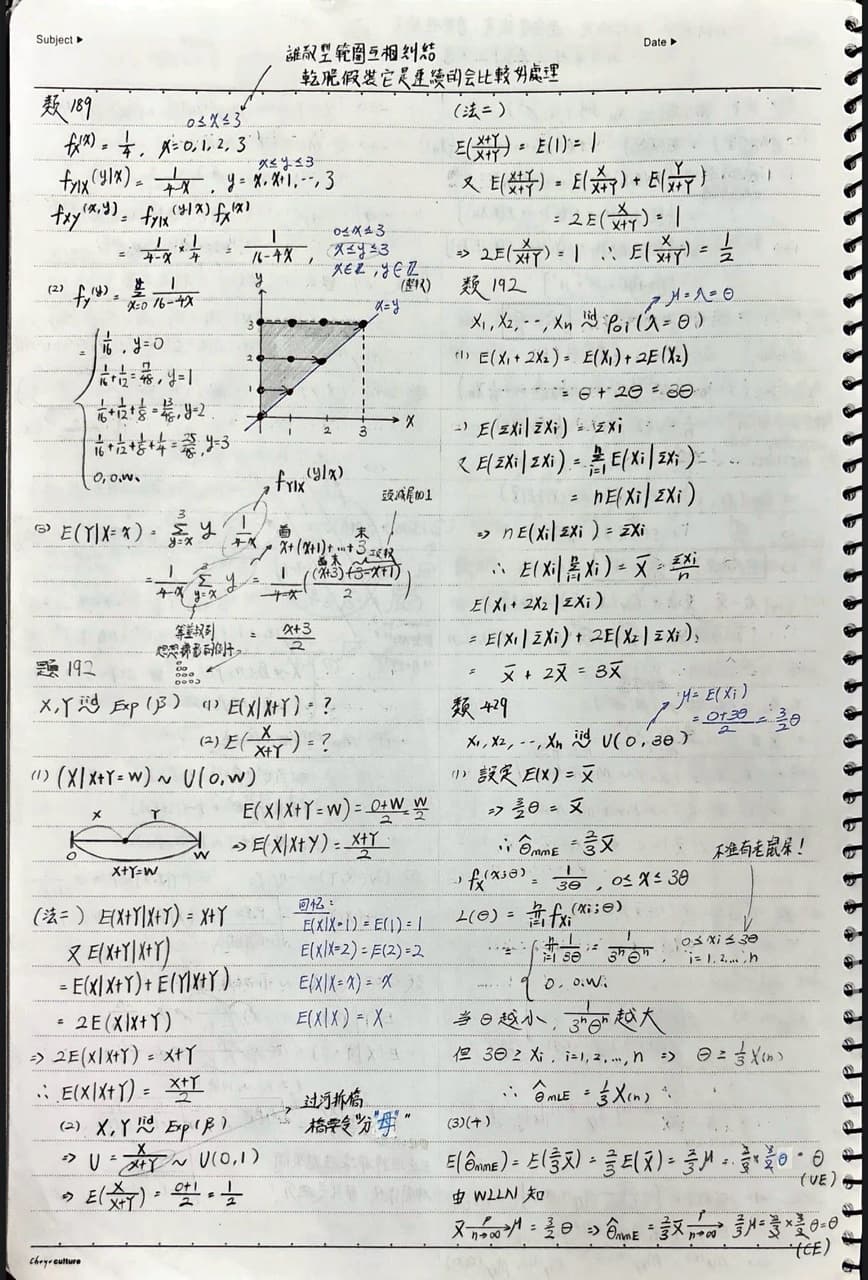 Subject ▶
Date ▶
離散型範圍互相糾結
乾脆假裝它是連續的会比較好處理
類189
0≤x≤3
fx(x) = 1/4, x=0,1,2,3
x≤y≤3
fY|X(y|x) = 1/(4-x), y=x,x+1,...,3
fXY(x,y) = fY|X(y|x) fX(x)
= 1/(4-x) × 1/4 = 1/(16-4x),
0≤x≤3
x≤y≤3
x∈ℤ, y∈ℤ
(2) fY(y) = Σ_{x=0}^{y} 1/(16-4x)
= { 1/16, y=0
1/16+1/12=7/48, y=1
1/16+1/12+1/8=13/48, y=2
1/16+1/12+1/8+1/4=25/48, y=3
0, o.w.
y
x=y
3
2
1
1 2 3
x
fY|X(y|x)
(3) E(Y|X=x) = Σ_{y=x}^{3} y 1/(4-x)
首 末
x+(x+1)+...+3
= 1/(4-x) Σ_{y=x}^{3} y = 1/(4-x) ( (x+3)(3-x+1)/2 )
首 末 項數
= (x+3)/2
等差級列
題192
X,Y iid~ Exp(β) (1) E(X|X+Y)=?
(2) E(X/(X+Y))=?
(1) (X|X+Y=w) ~ U(0,w)
X Y
0 w
X+Y=w
E(X|X+Y=w) = (0+w)/2 = w/2
⇒ E(X|X+Y) = (X+Y)/2
(法二) E(X+Y|X+Y) = X+Y
又 E(X+Y|X+Y)
= E(X|X+Y)+E(Y|X+Y)
= 2E(X|X+Y)
⇒ 2E(X|X+Y) = X+Y
∴ E(X|X+Y) = (X+Y)/2
回忆:
E(X|X=1) = E(1) = 1
E(X|X=2) = E(2) = 2
E(X|X=x) = x
E(X|X) = X
过河拆橋
橋要是"分"母""
(2) X,Y iid~ Exp(β)
⇒ U = X/(X+Y) ~ U(0,1)
⇒ E(X/(X+Y)) = (0+1)/2 = 1/2
(法二)
E((X+Y)/(X+Y)) = E(1) = 1
又 E((X+Y)/(X+Y)) = E(X/(X+Y)) + E(Y/(X+Y))
= 2E(X/(X+Y)) = 1
⇒ 2E(X/(X+Y)) = 1 ∴ E(X/(X+Y)) = 1/2
類192
μ=λ=θ
X1,X2,...,Xn iid~ Poi(λ=θ)
(1) E(X1+2X2) = E(X1)+2E(X2)
= θ+2θ = 3θ
E(ΣXi|ΣXi) = ΣXi
又 E(ΣXi|ΣXi) = Σ_{i=1}^{n} E(Xi|ΣXi)
= nE(Xi|ΣXi)
⇒ nE(Xi|ΣXi) = ΣXi
∴ E(Xi|Σ_{i=1}^{n} Xi) = X̄ = ΣXi/n
E(X1+2X2|ΣXi)
= E(X1|ΣXi)+2E(X2|ΣXi)
= X̄+2X̄ = 3X̄
類429
μ=E(Xi)
= (0+3θ)/2 = 3/2 θ
X1,X2,...,Xn iid~ U(0,3θ)
(1) 設定 E(X) = X̄
⇒ 3/2 θ = X̄
∴ θ̂MME = 2/3 X̄
不准有老鼠屎!
fX(x;θ) = 1/(3θ), 0≤x≤3θ
L(θ) = Π_{i=1}^{n} fXi(xi;θ)
= { Π_{i=1}^{n} 1/(3θ) = 1/(3ⁿθⁿ), 0≤xi≤3θ
i=1,2,...,n
0, o.w.
當 θ 越小, 1/(3ⁿθⁿ) 越大
但 3θ≥Xi, i=1,2,...,n ⇒ θ≥1/3 X(n)
∴ θ̂MLE = 1/3 X(n)
(3)(4)
E(θ̂MME) = E(2/3 X̄) = 2/3 E(X̄) = 2/3 μ = 2/3 × 3/2 θ = θ
(UE)
由 WLLN 知
X̄ →p n→∞ μ = 3/2 θ ⇒ θ̂MME = 2/3 X̄ →p n→∞ 2/3 μ = 2/3 × 3/2 θ = θ
(CE)
culture